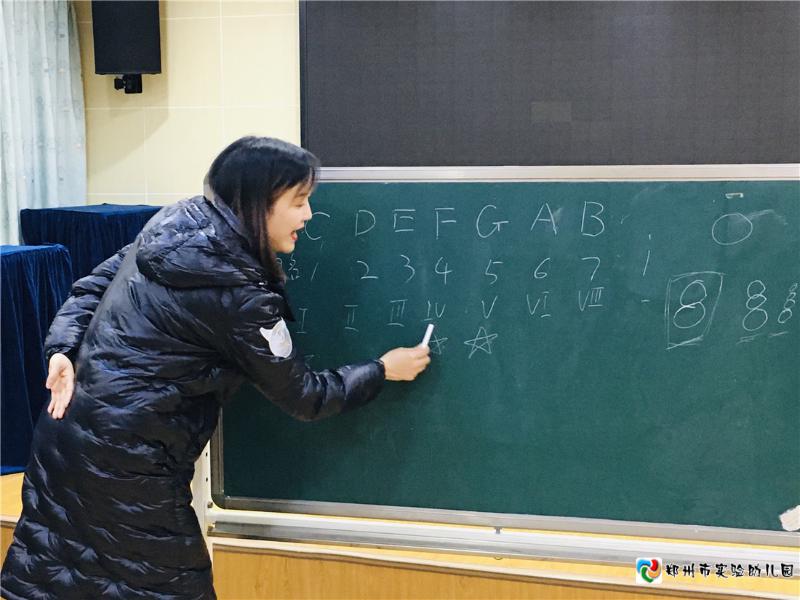 C D E F G A B
1 2 3 4 5 6 7 1
I II III IV V VI VII
8 8 8
郑州市实验幼儿园